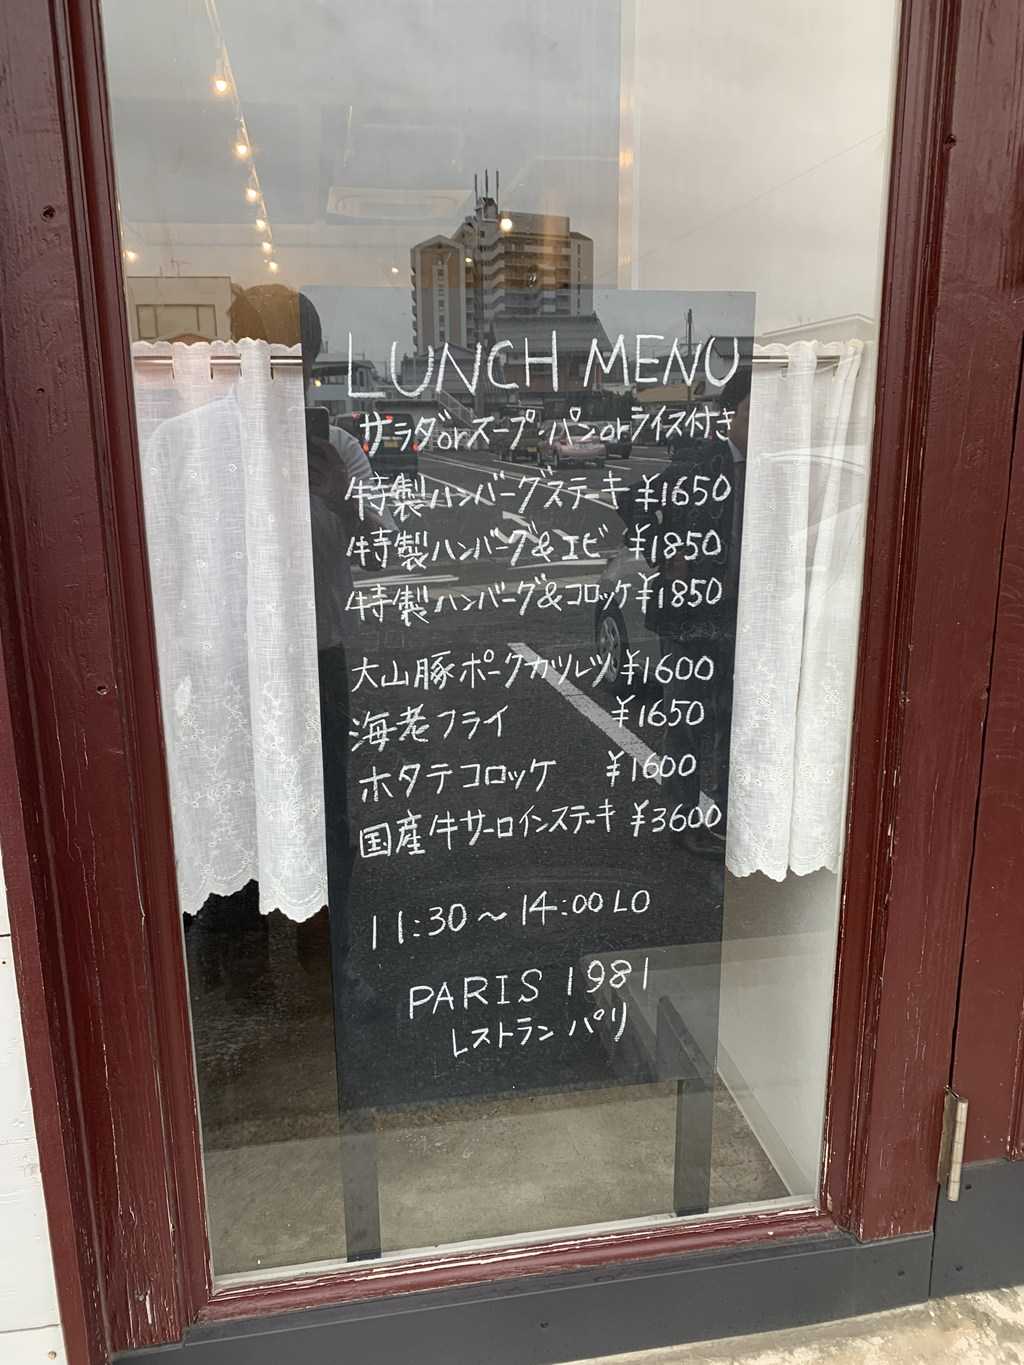 LUNCH MENU
サラダorスープ・パンorライス付き
特製ハンバーグステーキ ¥1650
特製ハンバーグ&エビ ¥1850
特製ハンバーグ&コロッケ ¥1850
大山豚ポークカツレツ ¥1600
海老フライ ¥1650
ホタテコロッケ ¥1600
国産牛サーロインステーキ ¥3600
11:30〜14:00 LO
PARIS 1981
レストラン パリ